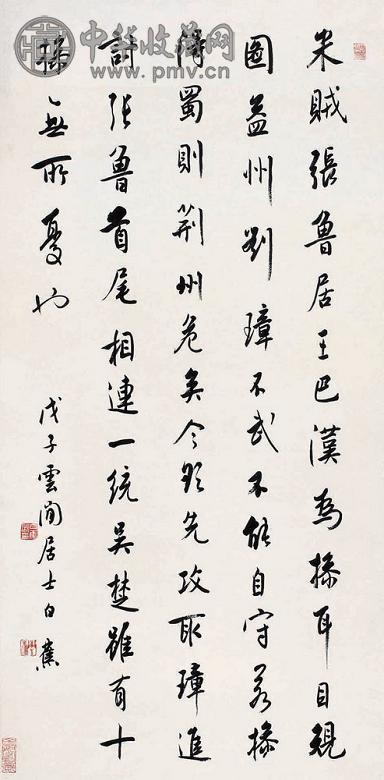 米賊張魯居王巴漢為操耳目規
圖益州劉璋不武不能自守若操
得蜀則荊州危矣今欲先攻取璋進
討張魯首尾相連一統吳楚雖有十
操無所憂也
戊子雲間居士白蕉
中华收藏网
www.pmv.cn